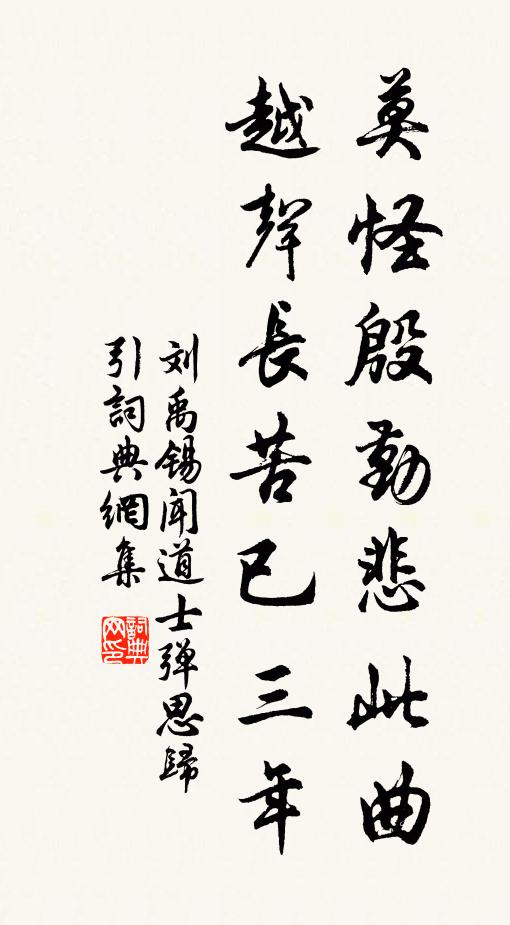 莫怪殷勤悲此曲
越聲長苦已三年
刘禹锡闻道士弹思歸
引詞典網集
詞典网印